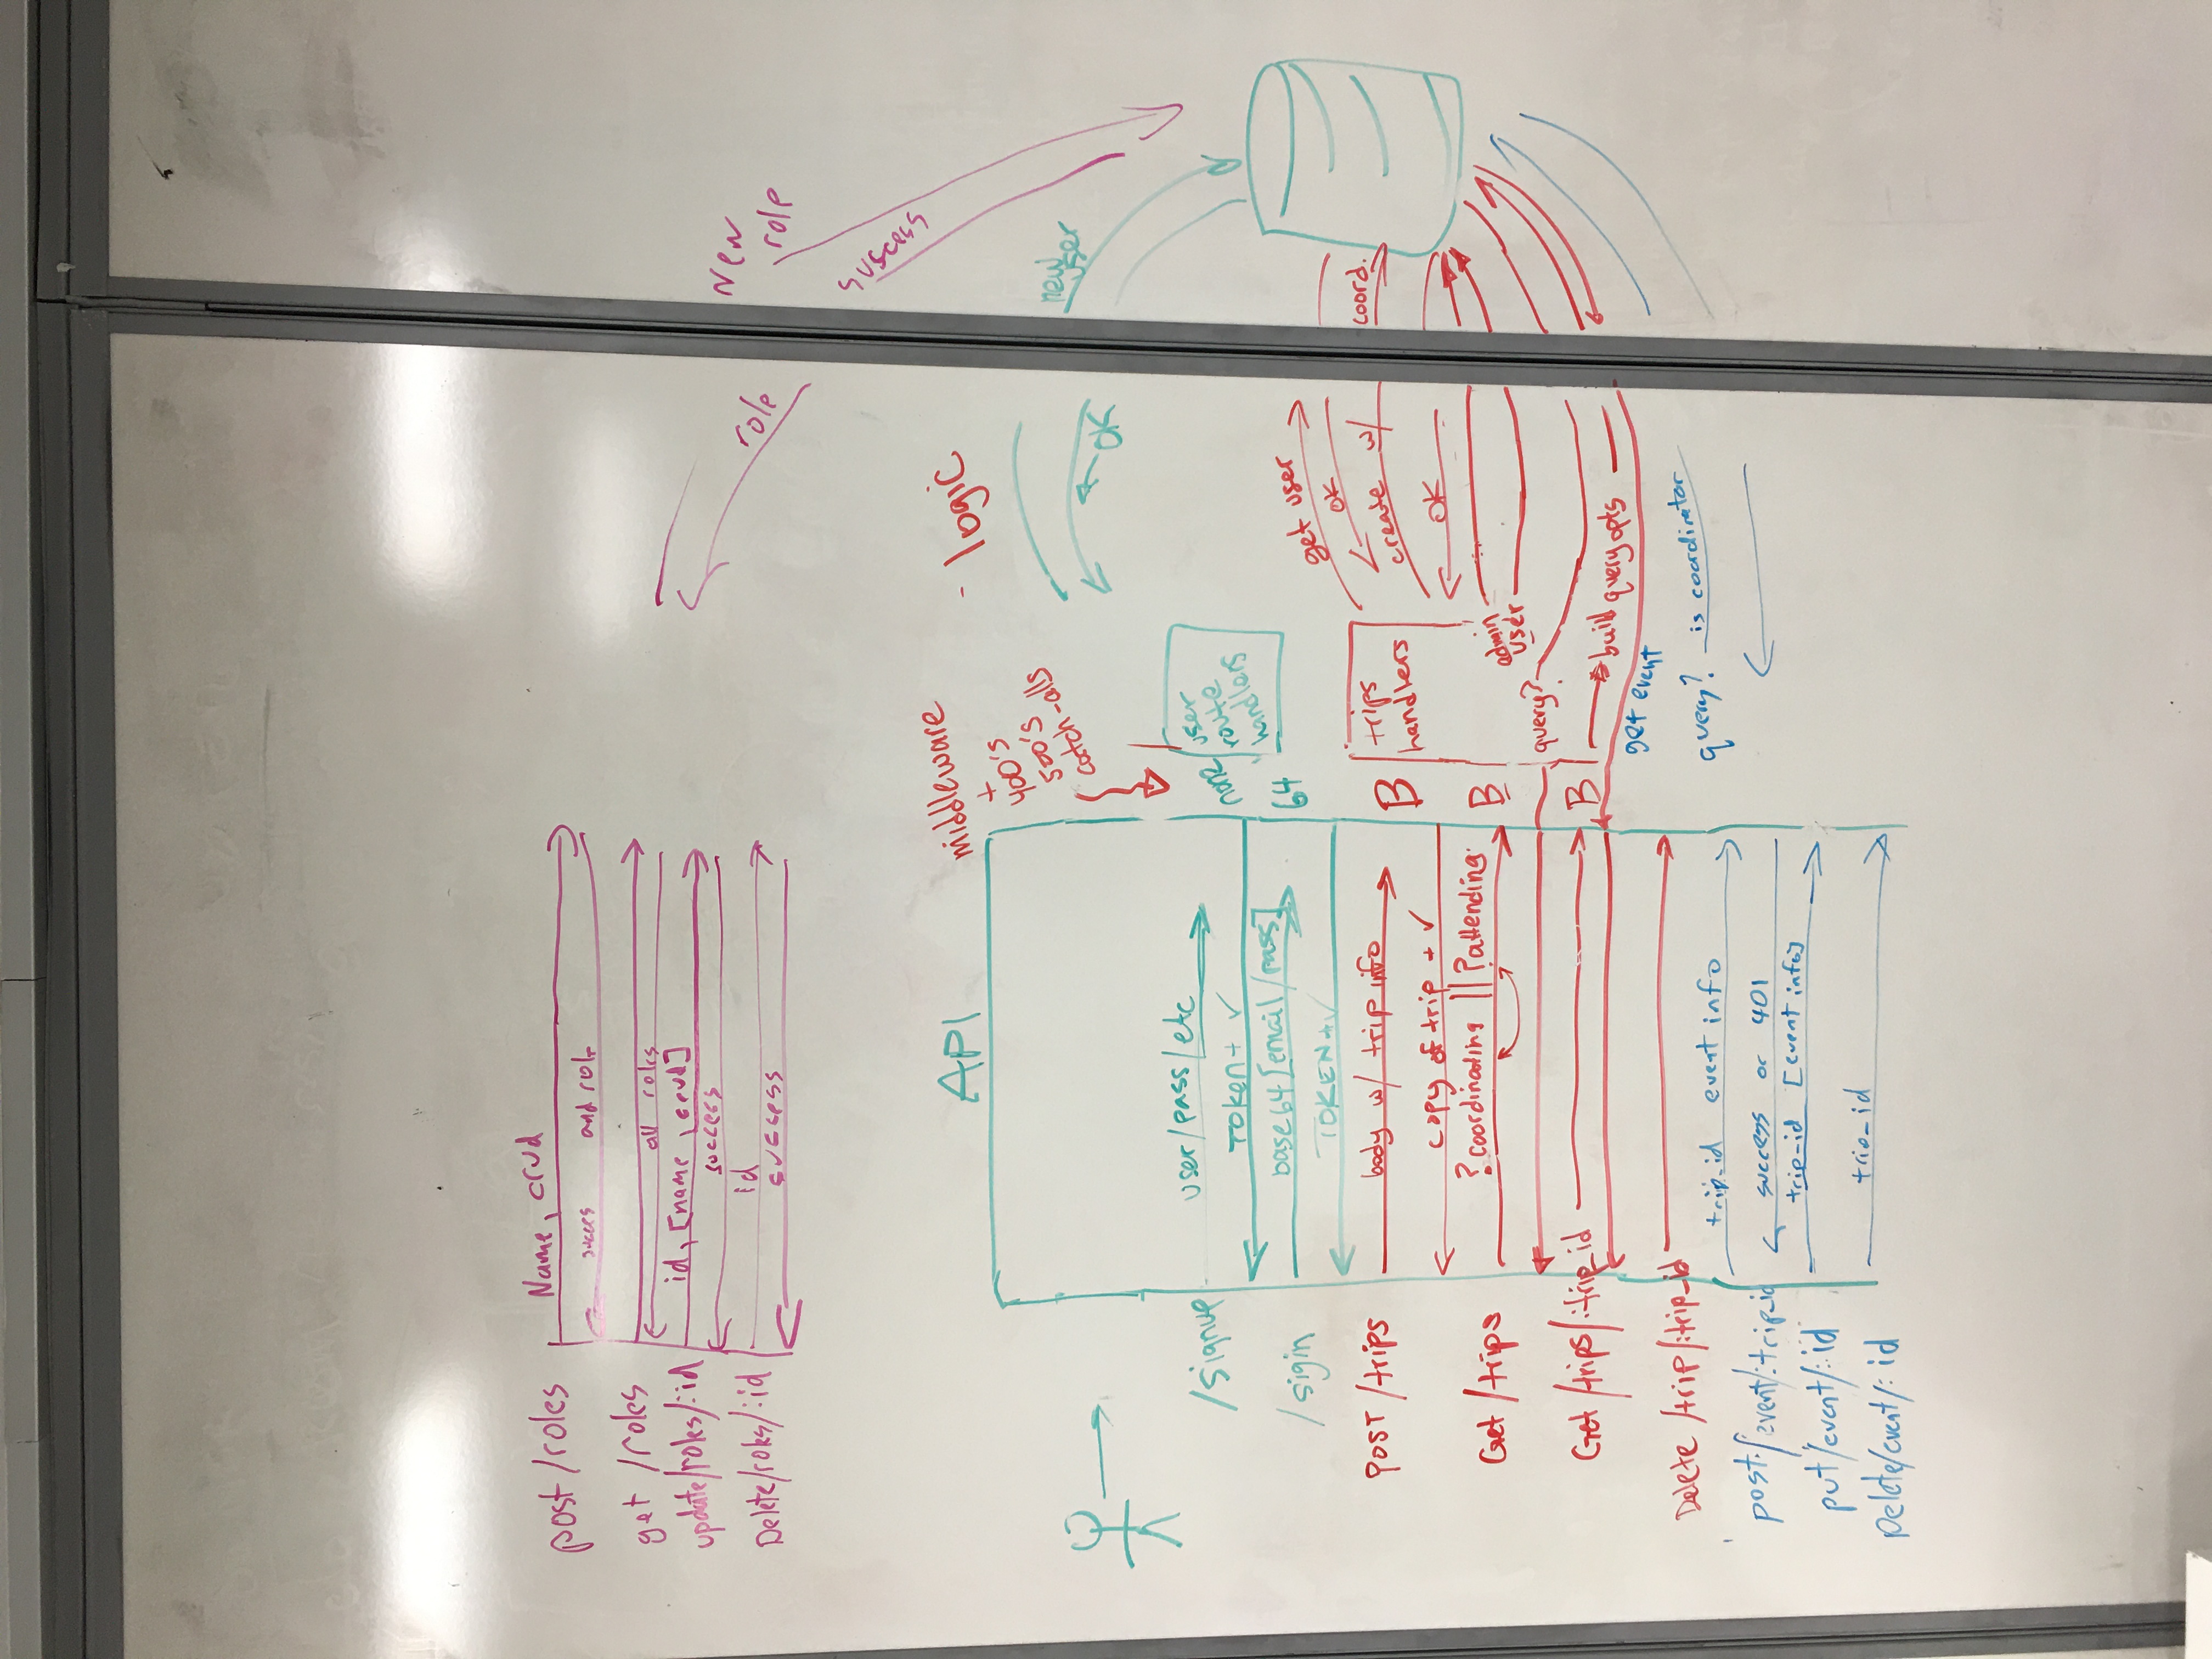 post/roles
Name, crud
succes and role
get /roles
all roles
update/roles/:id
id, [name, crud]
success
Delete/roles/:id
id
success
role
New
role
success
API
middleware
+
400's
500's
catch-alls
- logic
new
user
OK
/signup
user/pass/etc
TOKEN + ✓
none
user
route
handlers
/sigin
base64[email/pass]
64
TOKEN + ✓
get user
OK
POST /trips
body w/ trip info
B
trips
handlers
create w/ coord.
copy of trip + ✓
OK
Get /trips
?coordinating || ?attending
B
admin
user
query?
Get /trips/:trip_id
B
build query opts
get event
Delete /trip/:trip_id
query? is coordinator
trip_id event info
post/event/:trip_id
success or 401
trip_id [event info]
put/event/:id
trip_id
Delete/event/:id